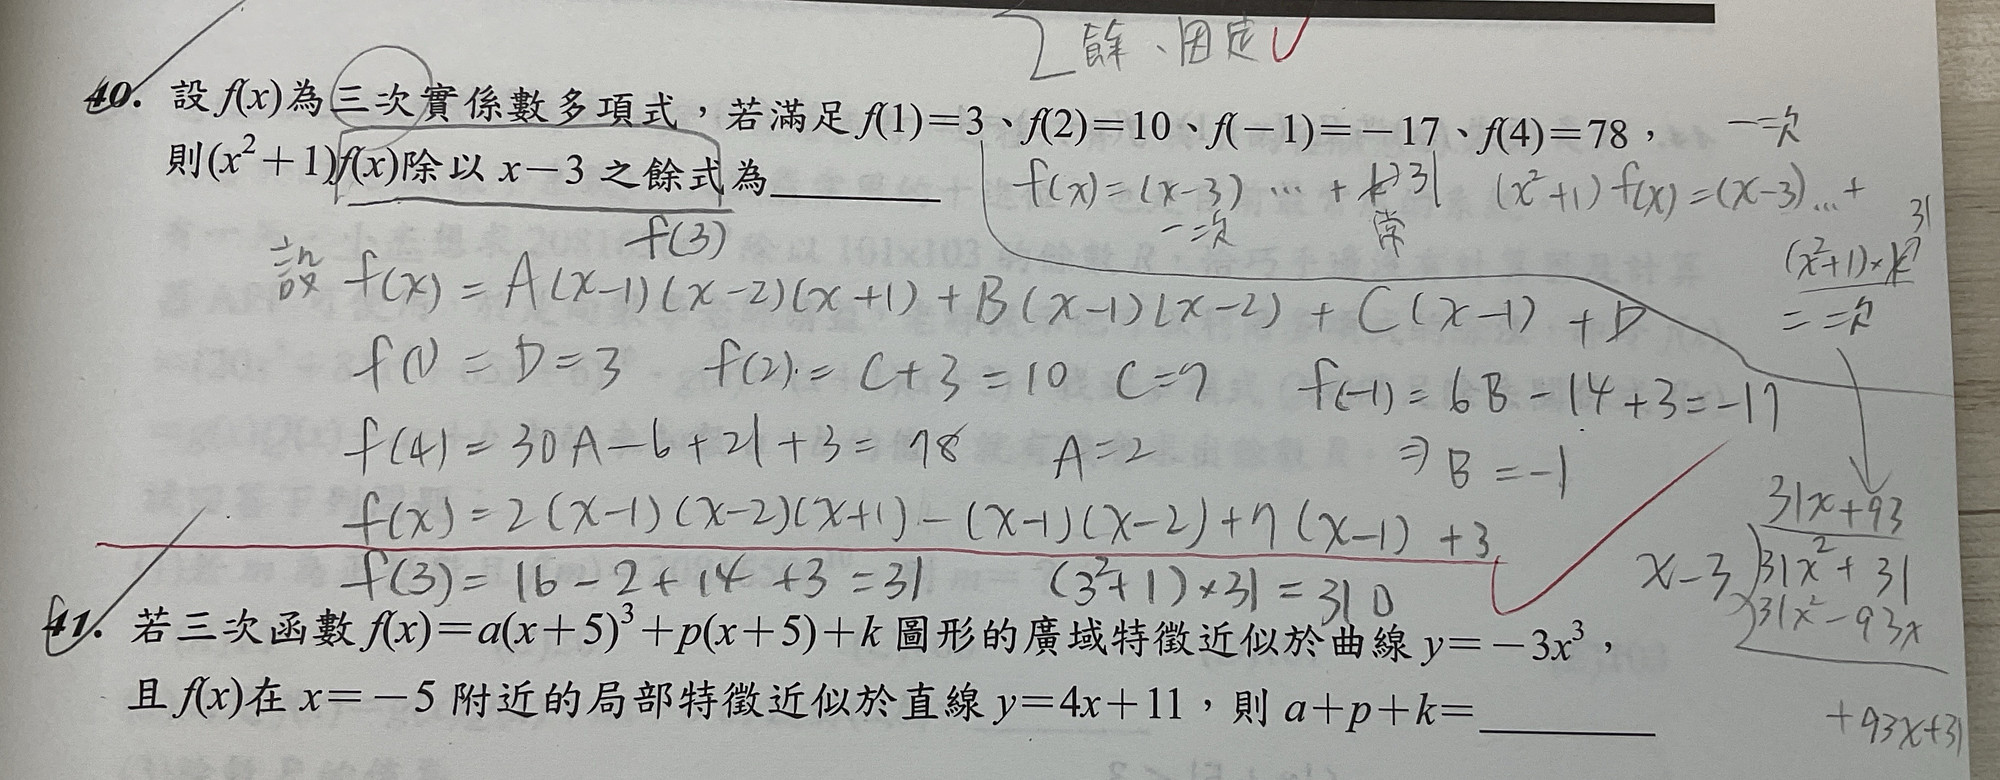 餘、因定
40. 設f(x)為三次實係數多項式，若滿足f(1)=3、f(2)=10、f(-1)=-17、f(4)=78，
則(x²+1)f(x)除以 x-3 之餘式為
一二次
f(x)=(x-3) … + k⇒31
一二次 常
(x²+1) f(x)=(x-3)…+
(x²+1)×k 31
=二次
f(3)
設 f(x) = A(x-1)(x-2)(x+1) + B(x-1)(x-2) + C(x-1) + D
f(1) = D = 3 f(2) = C+3 = 10 C=7 f(-1) = 6B-14+3=-17
f(4) = 30A-6+21+3 = 78 A=2 ⇒ B = -1
f(x) = 2(x-1)(x-2)(x+1) - (x-1)(x-2)+7(x-1) +3
f(3) = 16-2+14+3 = 31 (3²+1)×31 = 310
31x+93
x-3 31x²+31
31x²-93x
+93x+31
41. 若三次函數 f(x)=a(x+5)³+p(x+5)+k 圖形的廣域特徵近似於曲線 y=-3x³，
且 f(x)在 x=-5 附近的局部特徵近似於直線 y=4x+11，則 a+p+k=